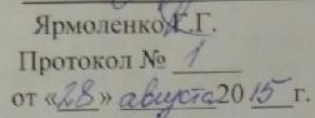 Ярмоленко Г.Г.
Протокол № 1
от «28» августа 2015 г.